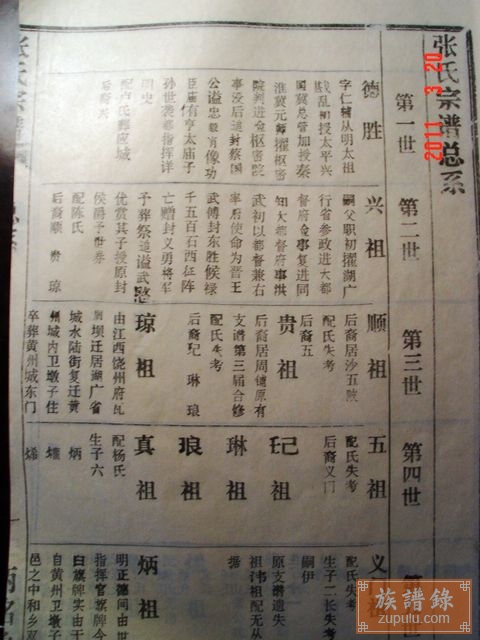 张氏宗谱总系
第一世
德胜
字仁辅从明太祖
戡乱初授太平兴
国冀总管加授秦
淮冀元帅擢枢密
院判进佥枢密院
事没后追封蔡国
公谥忠毅肖像功
臣庙有亨太庙子
孙世袭都指挥详
明史
配卢氏葬应城
后裔兴
第二世
兴祖
嗣父职初擢湖广
行省参政进大都
督府佥事复进同
知大都督府事洪
武初以都督兼右
率府使命为晋王
武傅封东胜候禄
千五百石西征阵
亡赠封义勇将军
予葬祭追谥武愍
优赏其子授原封
侯爵予世券
配陈氏
后裔顺 贵 琼
第三世
顺祖
后裔居沙五败
配氏失考
后裔五
贵祖
后裔居周铺原有
支谱第三届合修
配氏失考
后裔玘 琳 琅
琼祖
由江西饶州府瓦
坝迁居湖广省
城水陆街复迁黄
州城内卫墩子住
卒葬黄州城东门
第四世
五祖
配氏失考
后裔义门
玘祖
琳祖
琅祖
真祖
配杨氏
生子六
炳
烯
义
配氏失考
生子二长失考
嗣伊
原支谱遗失
祖祎祖配无从
据
炳祖
明正德间由世
指挥官旗牌令
曰旗牌实由于
自黄州卫墩子
邑之中和乡双
2011 3 20
族譜錄
zupulu.com